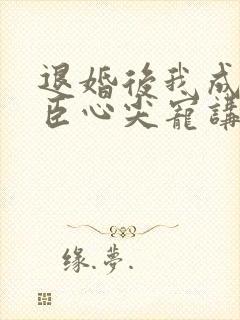 退婚後我成
臣心尖寵講
缘.夢.